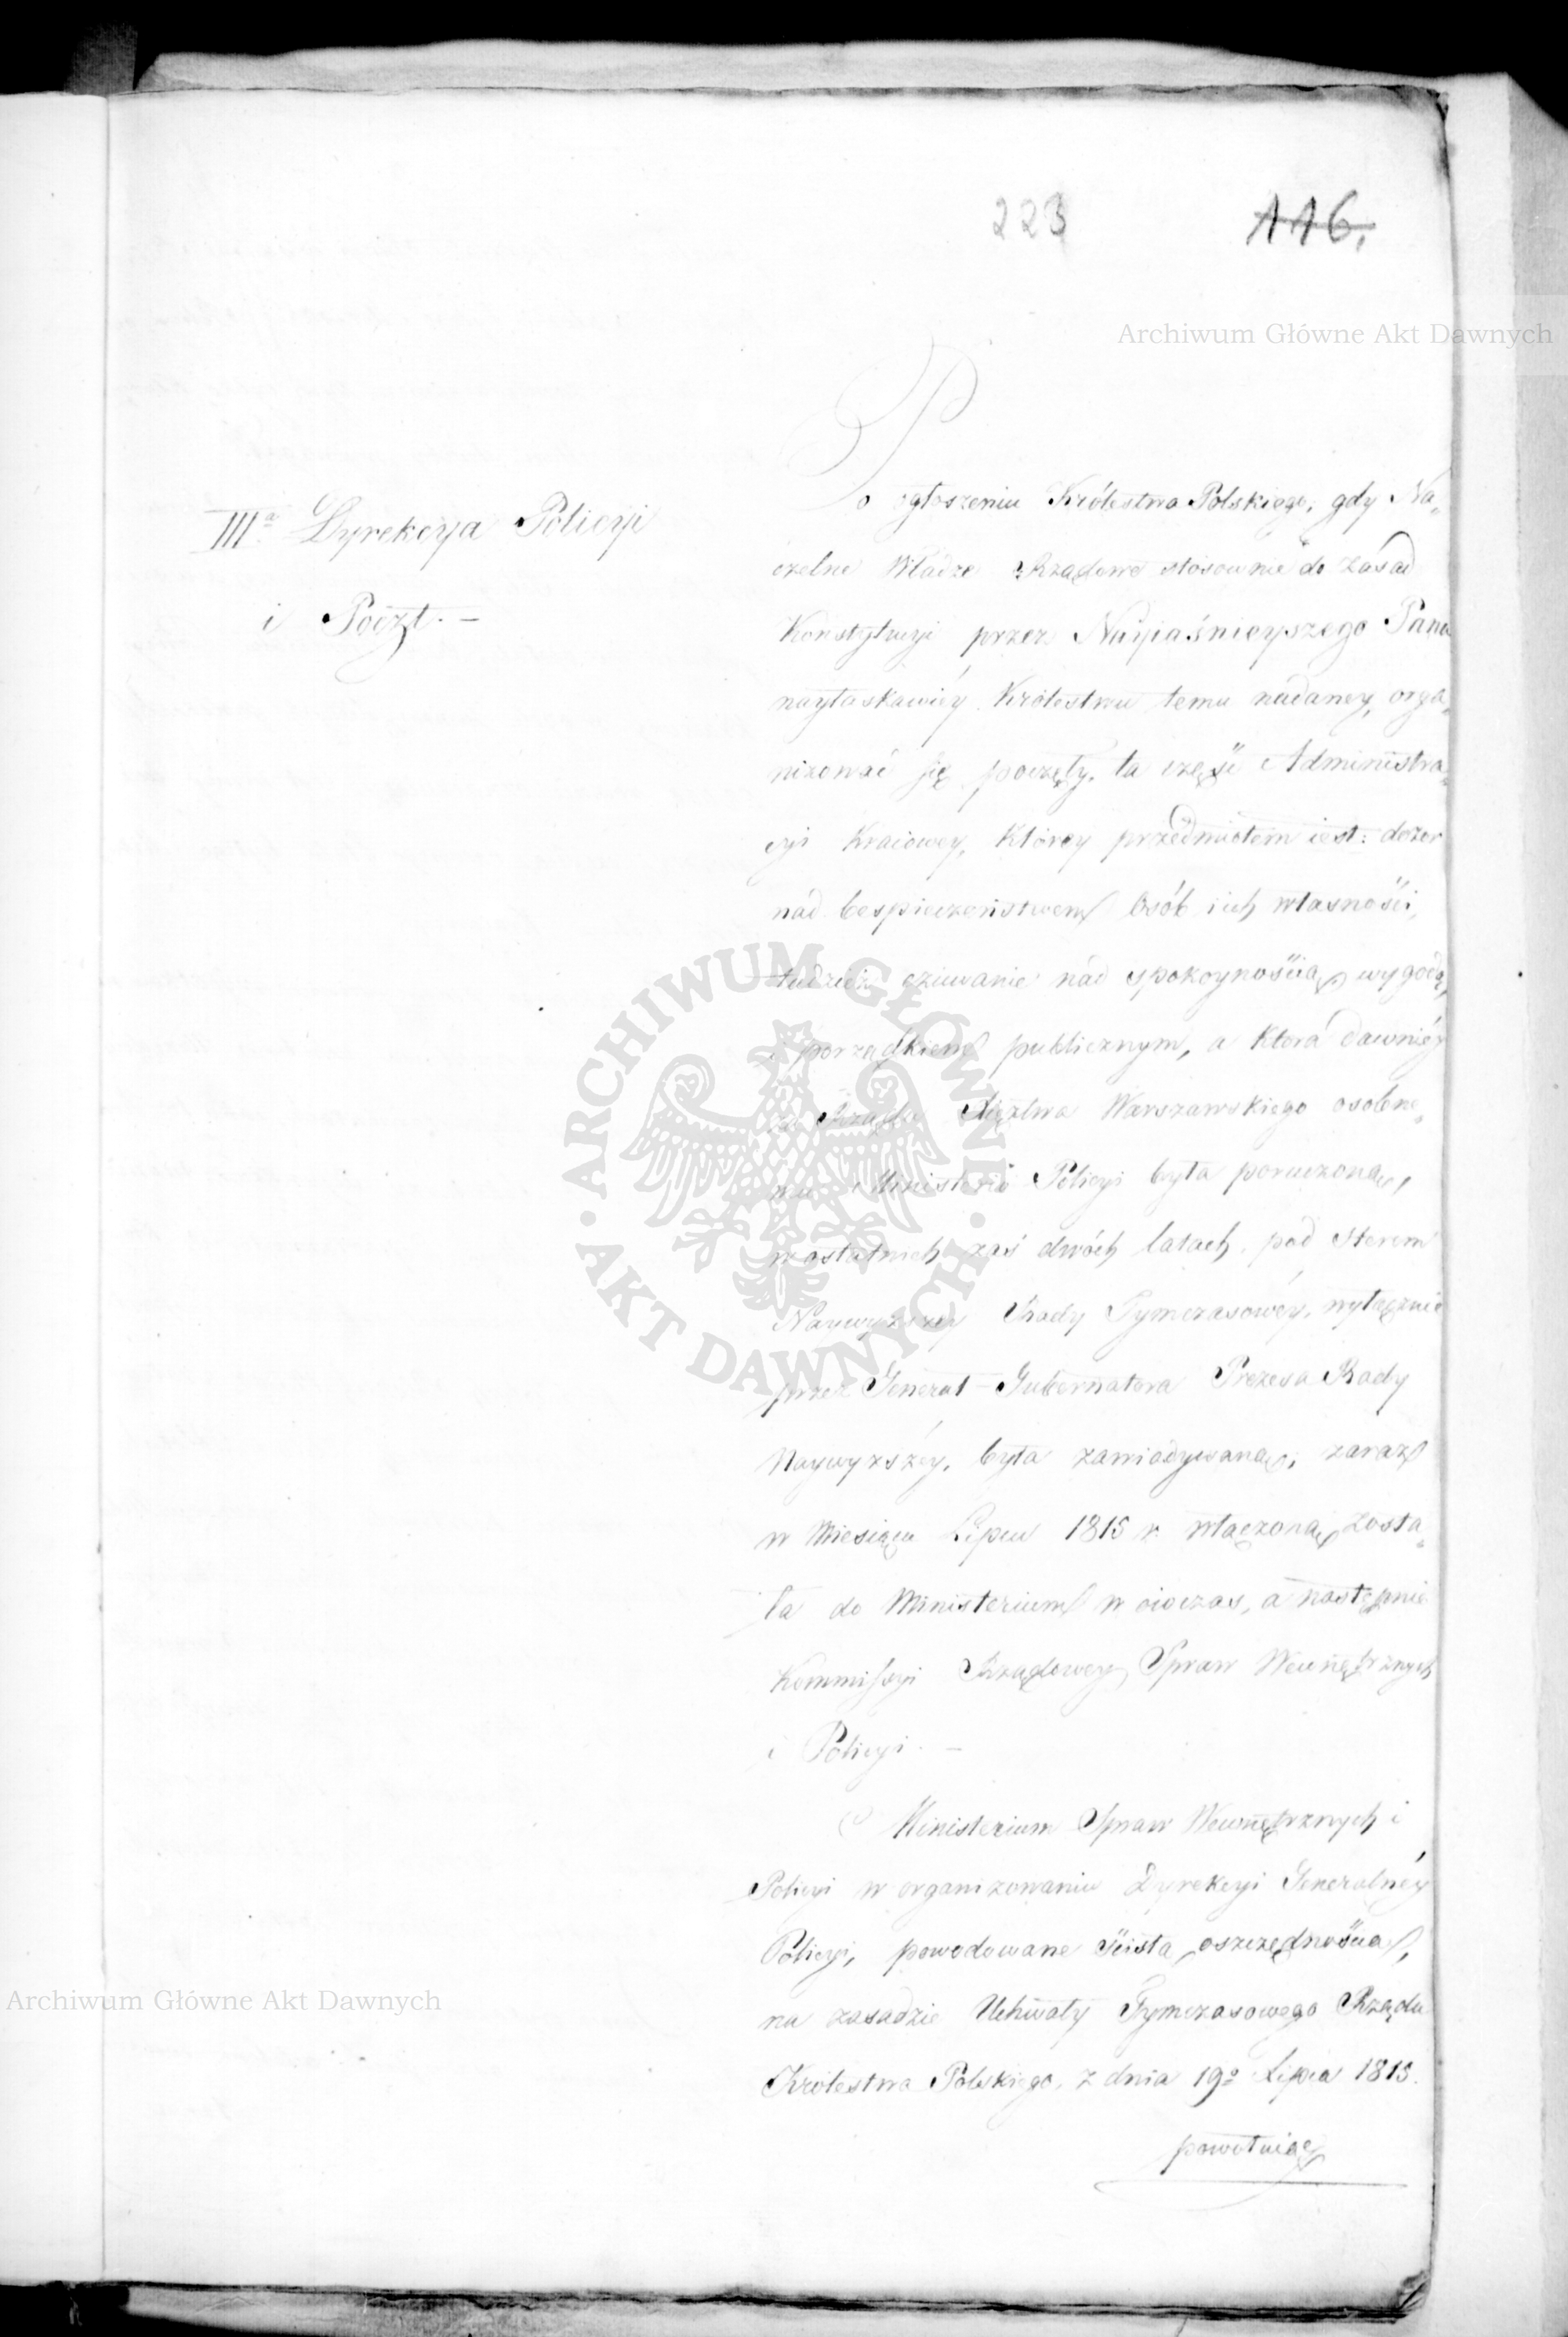 223 116.
Archiwum Główne Akt Dawnych
IIIª Dyrekcya Policyi
i Poczt. —
Po ogłoszeniu Królestwa Polskiego, gdy Na„
czelne Władze Rządowe stosownie do zasad
Konstytucyi przez Nayiaśnieyszego Pana
nayłaskawiéy Królestwu temu nadaney, orga„
nizować się poczęły, ta część Administra„
cyi Kraiowey, którey przedmiotem iest: dozor
nad bespieczeństwem Osób i ich własności,
tudzież czuwanie nad spokoynością, wygodą,
i porządkiem publicznym, a ktora dawniéy
za Rządu Xięztwa Warszawskiego osobne„
mu Ministrowi Policyi była poruczona,
w ostatnich zaś dwóch latach, pod sterem
Naywyższey Rady Tymczasowéy, wyłącznie
przez Generał-Gubernatora Prezesa Rady
Naywyższéy, była zawiadywana, zaraz
w Miesiącu Lipcu 1815 r. włączoną zosta„
ła do Ministerium w ów czas, a następnie
Kommissyi Rządowey Spraw Wewnętrznych
i Policyi. —
Ministerium Spraw Wewnętrznych i
Policyi w organizowaniu Dyrekcyi Generalnéy
Policyi, powodowane ścisłą oszczędnością,
na zasadzie Uchwały Tymczasowego Rządu
Królestwa Polskiego, z dnia 19º Lipca 1815.
powołuiąc
ARCHIWUM GŁÓWNE · AKT DAWNYCH ·
Archiwum Główne Akt Dawnych